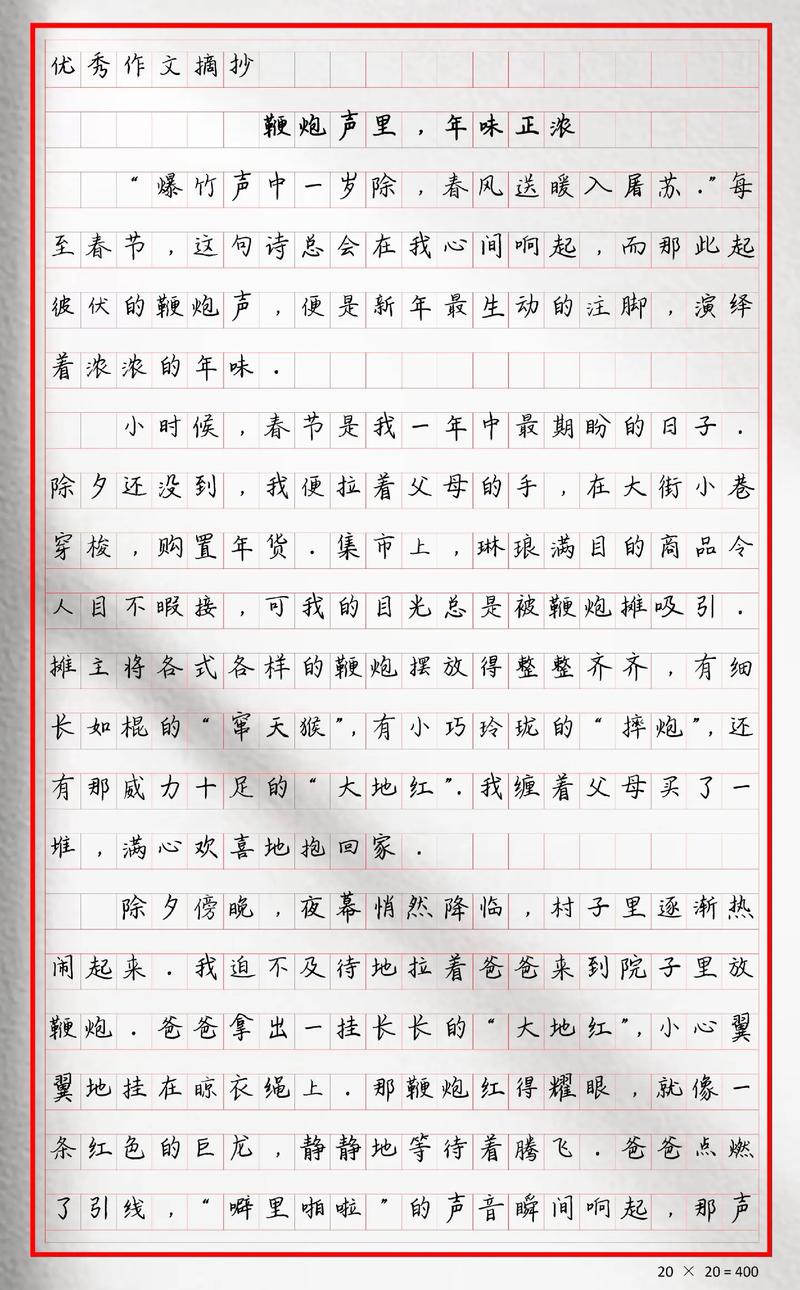 优秀作文摘抄
鞭炮声里，年味正浓
“爆竹声中一岁除，春风送暖入屠苏.”每
至春节，这句诗总会在我心间响起，而那此起
彼伏的鞭炮声，便是新年最生动的注脚，演绎
着浓浓的年味.
小时候，春节是我一年中最期盼的日子.
除夕还没到，我便拉着父母的手，在大街小巷
穿梭，购置年货.集市上，琳琅满目的商品令
人目不暇接，可我的目光总是被鞭炮摊吸引.
摊主将各式各样的鞭炮摆放得整整齐齐，有细
长如棍的“窜天猴”，有小巧玲珑的“摔炮”，还
有那威力十足的“大地红”.我缠着父母买了一
堆，满心欢喜地抱回家.
除夕傍晚，夜幕悄然降临，村子里逐渐热
闹起来.我迫不及待地拉着爸爸来到院子里放
鞭炮.爸爸拿出一挂长长的“大地红”，小心翼
翼地挂在晾衣绳上.那鞭炮红得耀眼，就像一
条红色的巨龙，静静地等待着腾飞.爸爸点燃
了引线，“噼里啪啦”的声音瞬间响起，那声
20 × 20=400